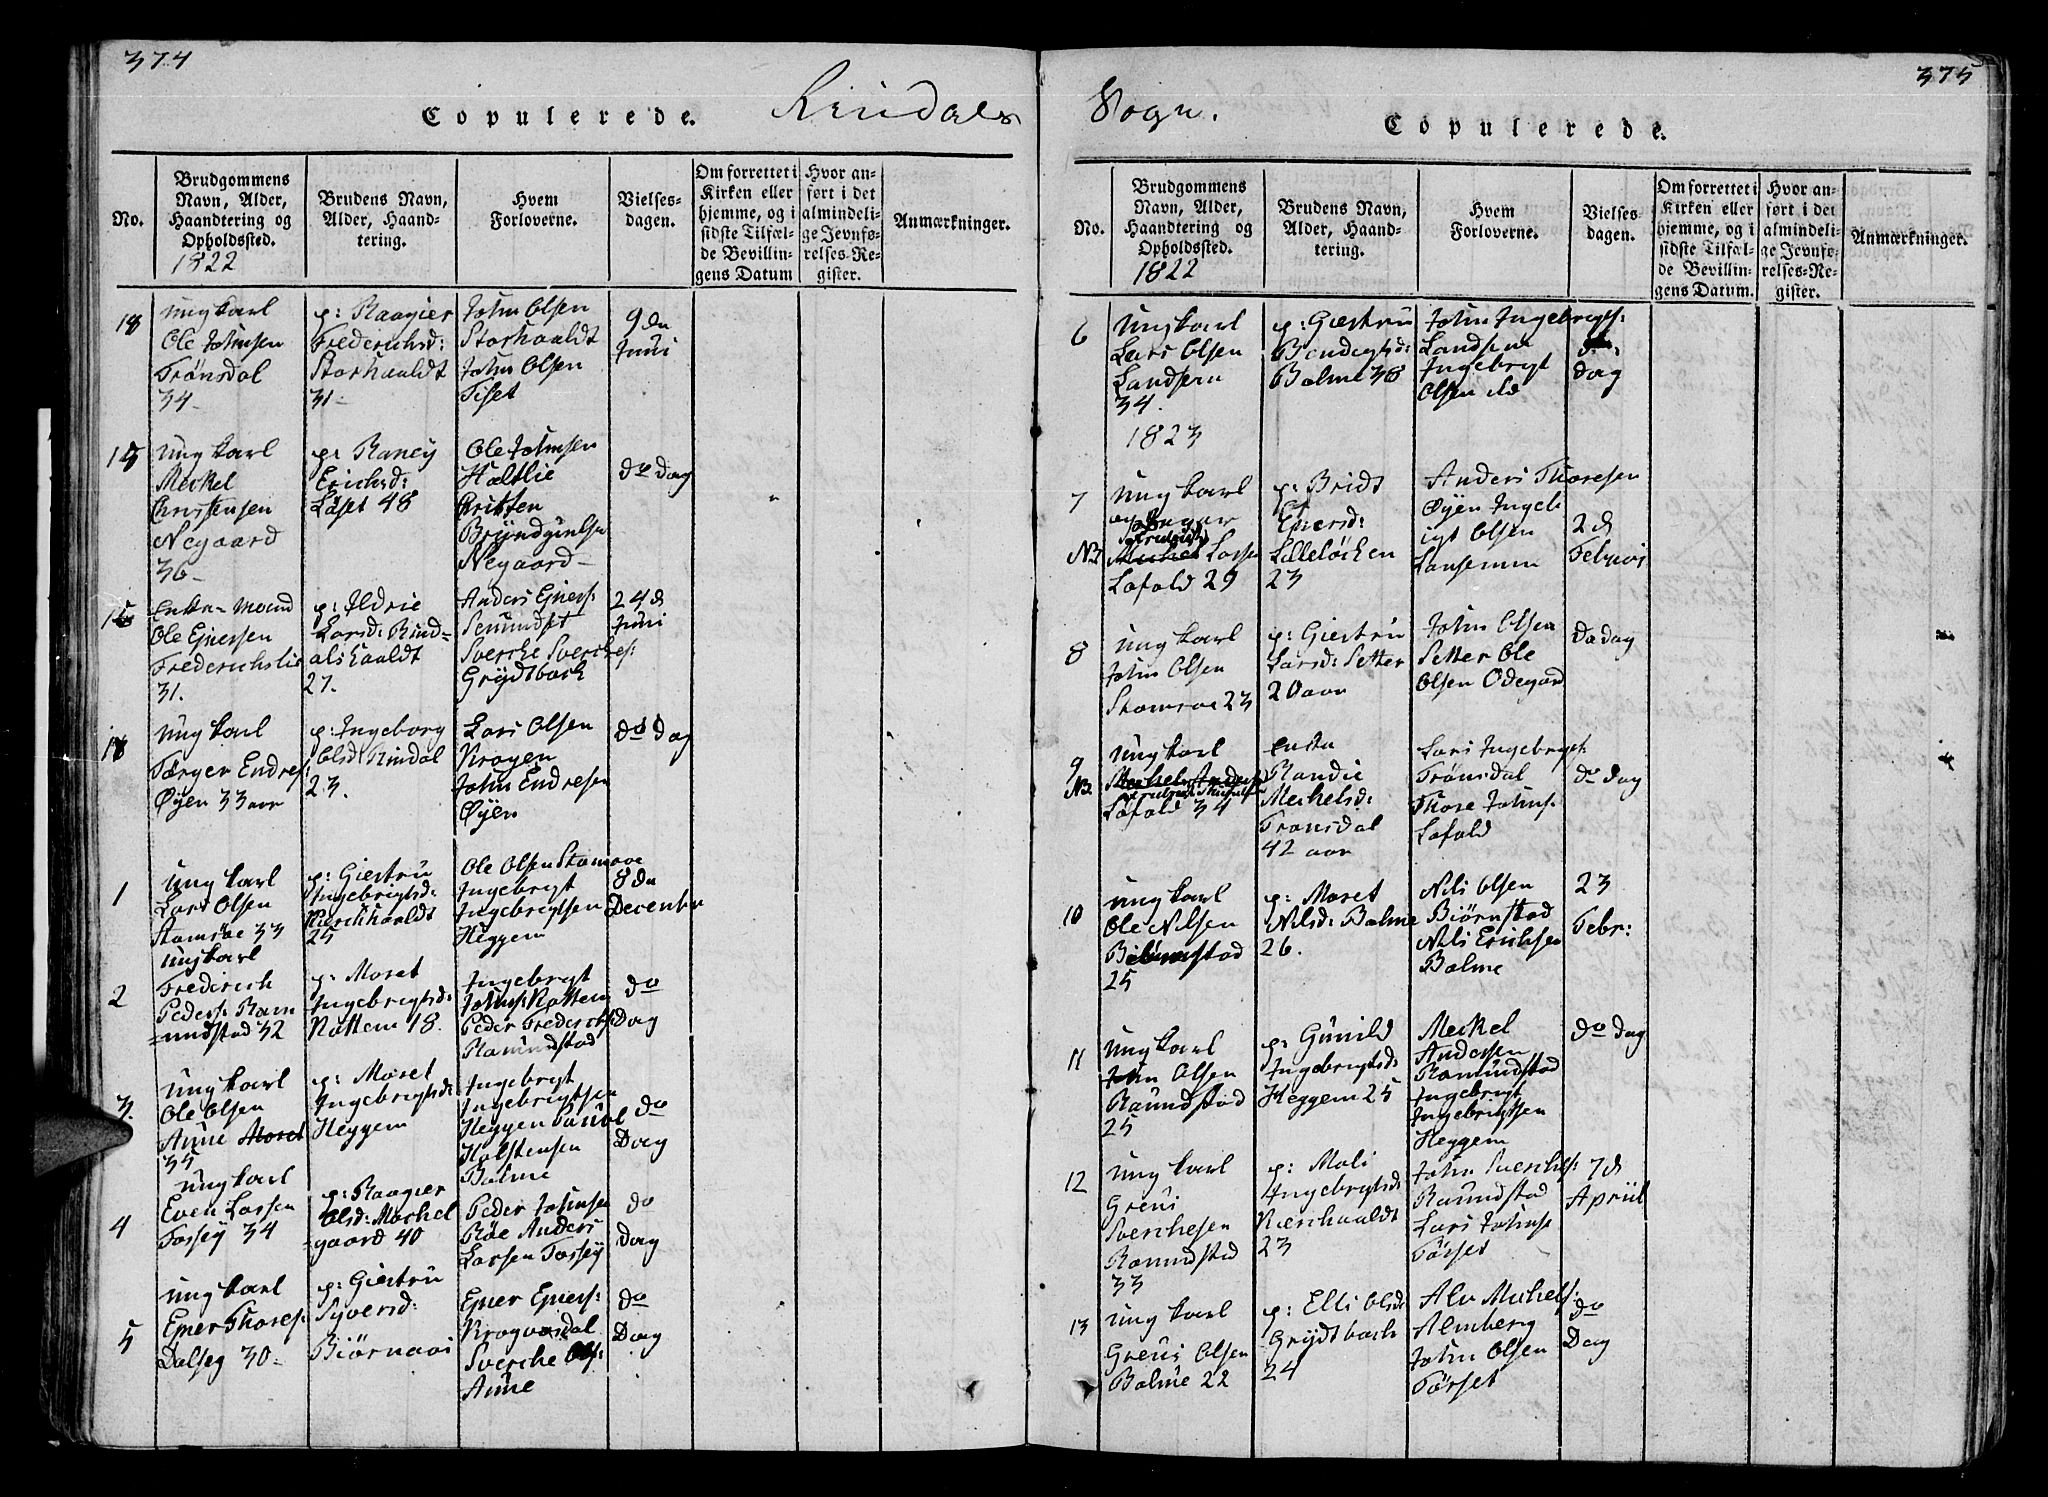 374
Copulerede.
Rindals
No.
Brudgommens
Navn, Alder,
Haandtering og
Opholdssted.
1822
Brudens Navn,
Alder, Haand-
tering.
Hvem
Forloverne.
Vielses-
dagen.
Om forrettet i
Kirken eller
hjemme, og i
sidste Tilfæl-
de Bevillin-
gens Datum
Hvor an-
ført i det
almindeli-
ge Jevnfø-
relses-Re-
gister.
Anmærkninger.
ungkarl
Ole Johnsen
Trönsdal
34-
p: Raagier
Frederichsd:
Storhaaldt
31-
John Olsen
Storhaaldt
John Olsen
Tiset
9 du
Juni
15
ungkarl
Meckel
Christensen
Negaard
36-
p: Raney
Erichsd:
Löset 48
Ole Johnsen
Haltlie
Cristen
Bryndgiulsen
Negaard-
do dag
Enke-mand
Ole Ejnersen
Frederichslie
31.
p: Ildrie
Larsd: Rind=
alshaaldt
27.
Anders Ejners:
Semundset
Sverche Sverches:
Grÿdtback
24 d
Juni
ungkarl
Törger Endres:
Øyen 33 aar
p: Ingeborg
Olsd Rindal
23.
Lars Olsen
Krogen
John Endresen
Øyen
do dag
1
ungkarl
Lars Olsen
Stomsöe 33
p: Giertru
Ingebrigtsd:
Kierchhaaldt
25
Ole Olsen Stomsöe
Ingebrygt
Ingebrigtsen
Heggem
8 du
December
2
ungkarl
Frederich
Peders: Ram
=undstad 32
p: Maret
Ingebrigtsd:
Nottem 18.
Ingebrygt
Johns: Nottem
Peder Frederichs
Ramundstad
do
Dag
3.
ungkarl
Ole Olsen
Aune Maret
35
p: Maret
Ingebrigtsd:
Heggem
Ingebrygt
Ingebrigtsen
Heggen Paüvl
Halstensen
Bolme
do
Dag
4
ungkarl
Even Larsen
Fossey 34
p: Raagier
Olsd: Mochel
=gaard 40
Peder Johnsen
Röe Anders
Larsen Fossey
do
Dag
5
ungkarl
Ejner Thores:
Dalseg 30-
p: Giertru
Syversd:
Biörnaas
Ejner Ejners:
Krogaasdal
Sverche Ols:
Aune
do
Dag
375
Sogn.
Copulerede.
No.
Brudgommens
Navn, Alder,
Haandtering og
Opholdssted.
1822
Brudens Navn,
Alder, Haand-
tering.
Hvem
Forloverne.
Vielses-
dagen.
Om forrettet i
Kirken eller
hjemme, og i
sidste Tilfæl-
de Bevillin-
gens Datum.
Hvor an-
ført i det
almindeli-
ge Jevnfø-
relses-Re-
gister.
Anmærkninger.
6
Ungkarl
Lars Olsen
Landsem
34.
p: Giertru
Bendegtsd:
Bolme 38
John Ingebrigts:
Landsem
Ingebrygt
Olsen
dag
1823
7
NB
Ungkarl
Larsen
Lofald 29
p: Bridt
Ejnersd:
Lilleløcken
23
Anders Thoresen
Øyen Ingeb
rigt Olsen
Lansemm
2 d
Februari
8
ungkarl
John Olsen
Stomsøe 23
p: Giertru
Larsd: Setter
20 aar
John Olsen
Setter Ole
Olsen Ödegard
Do dag
9
NB
ungkarl
Lofald 34
Enke
Randie
Mechelsd:
Tronsdal
42 aar
Lars Ingebrygt:
Trönsdal
Thore Johns:
Lofald
do dag
10
ungkarl
Ole Nilsen
Biörnstad
25
p: Maret
Nilsd: Bolme
26.
Nils Olsen
Biørnstad
Nils Erichsen
Bolme
23
Febr:
11
ungkarl
John Olsen
Raundstad
25
p: Günild
Ingebrigtsd:
Heggem 25
Meckel
Andersen
Romundstad
Ingebrigt
Ingebrigtsen
Heggem
do dag
12
ungkarl
Greüs
Sverchesen
Romundstad
33
p: Mali
Ingebrygtsd:
Kierchaaldt
23
John Sverches:
Raundstad
Lars Johns:
Törset
7 d
Apriil
13
ungkarl
Greüs Olsen
Bolme 22
p: Elli Olsd:
Grÿdtback
24
Alv Michels:
Almberg
John Olsen
Törset
do
Dag